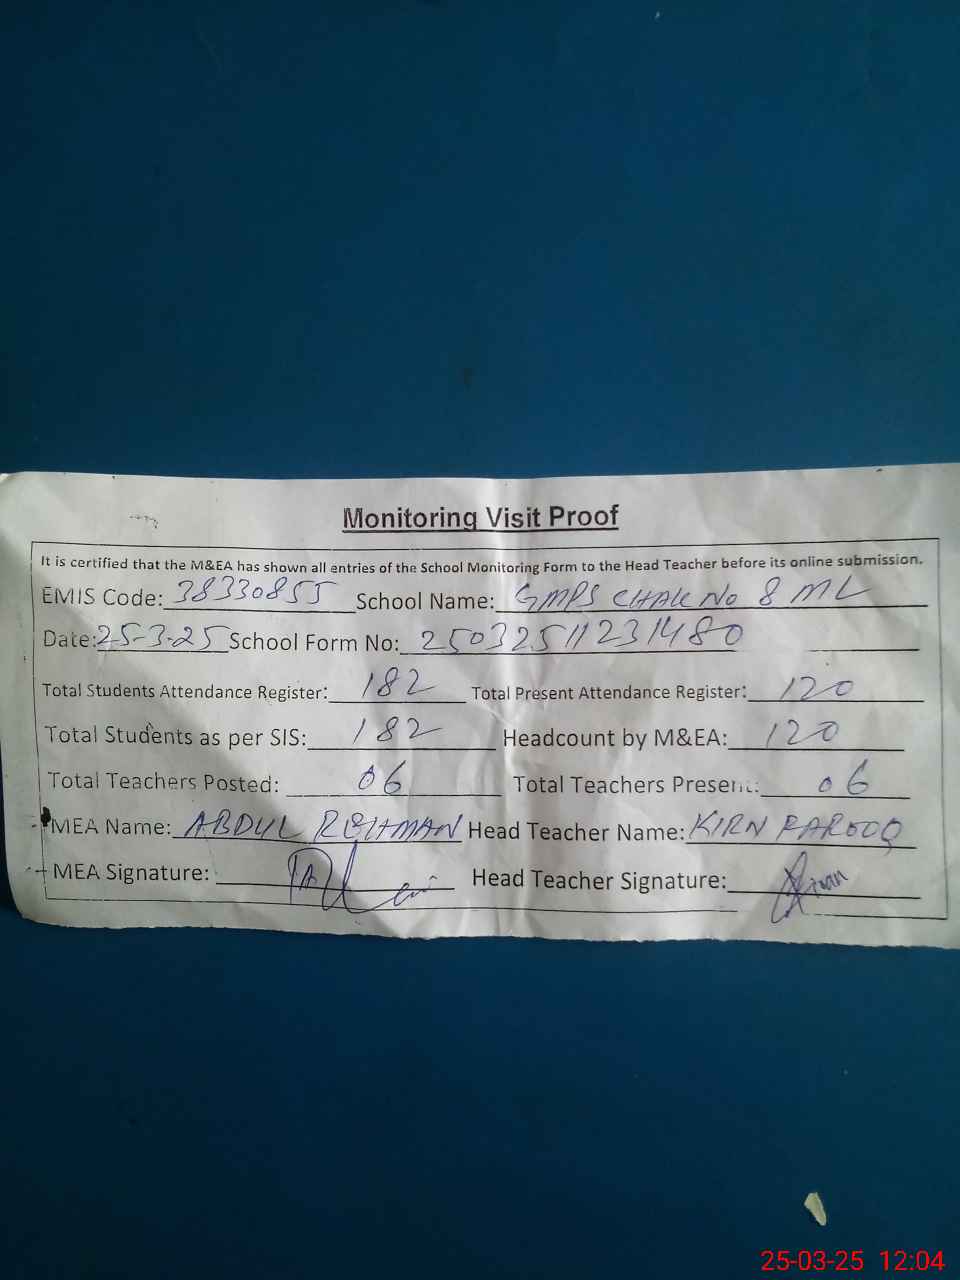 Monitoring Visit Proof
It is certified that the M&EA has shown all entries of the School Monitoring Form to the Head Teacher before its online submission.
EMIS Code: 38330855 School Name: GMPS CHAK No 8 ML
Date: 25-3-25 School Form No: 25032511231480
Total Students Attendance Register: 182 Total Present Attendance Register: 120
Total Students as per SIS: 182 Headcount by M&EA: 120
Total Teachers Posted: 06 Total Teachers Present: 06
MEA Name: ABDUL REHMAN Head Teacher Name: KIRN FAROOQ
MEA Signature: Head Teacher Signature:
25-03-25 12:04